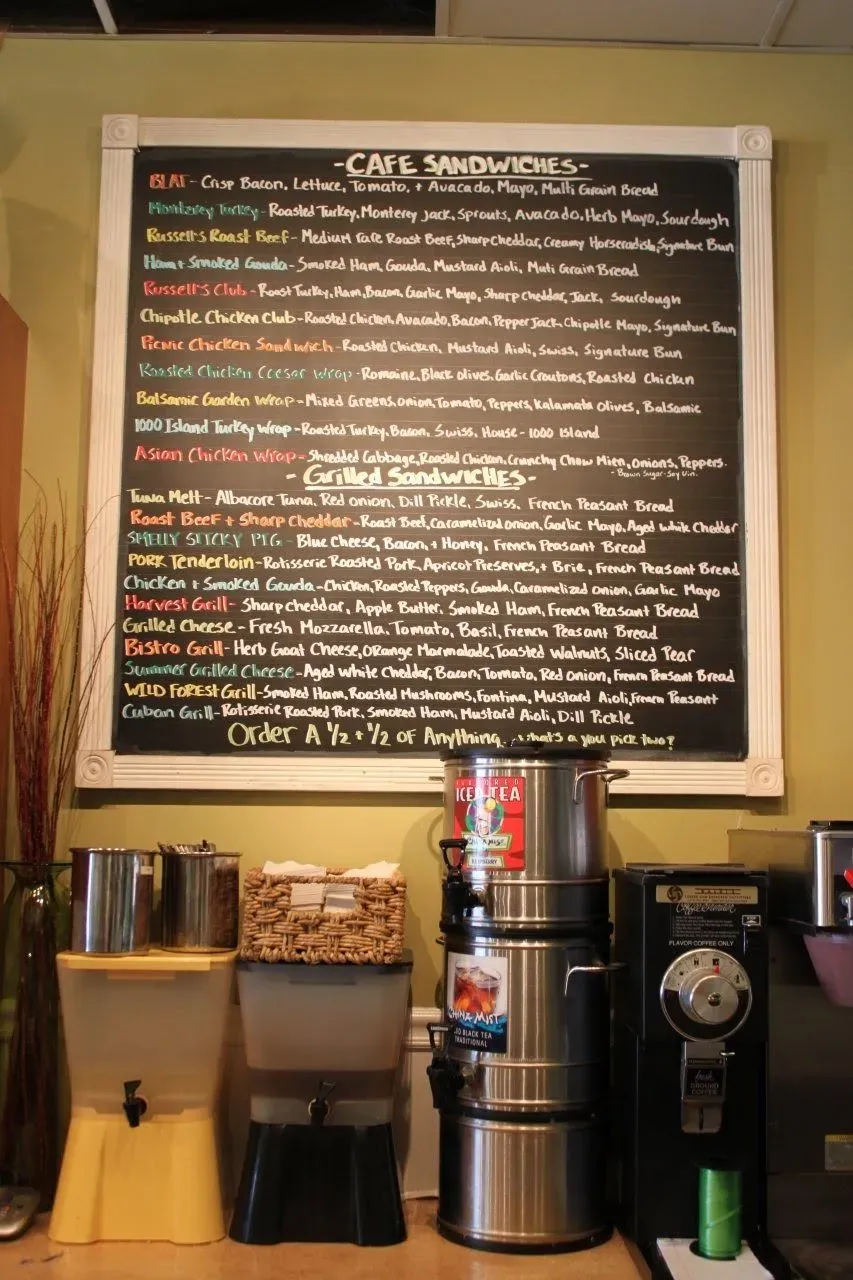 -CAFE SANDWICHES-
BLAT - Crisp Bacon, Lettuce, Tomato, + Avacado, Mayo, Multi Grain Bread
Monterey Turkey - Roasted Turkey, Monterey Jack, Sprouts, Avacado, Herb Mayo, Sourdough
Russell's Roast Beef - Medium rare Roast Beef, Sharp Cheddar, Creamy Horseradish, Signature Bun
Ham + Smoked Gouda - Smoked Ham, Gouda, Mustard Aioli, Muti Grain Bread
Russell's Club - Roast Turkey, Ham, Bacon, Garlic Mayo, Sharp Cheddar, Jack, Sourdough
Chipotle Chicken Club - Roasted Chicken, Avacado, Bacon, Pepper Jack, Chipotle Mayo, Signature Bun
Picnic Chicken Sandwich - Roasted Chicken, Mustard Aioli, Swiss, Signature Bun
Roasted Chicken Caesar Wrap - Romaine, Black Olives, Garlic Croutons, Roasted Chicken
Balsamic Garden Wrap - Mixed Greens, Onion, Tomato, Peppers, Kalamata Olives, Balsamic
1000 Island Turkey Wrap - Roasted Turkey, Bacon, Swiss, House - 1000 Island
Asian Chicken Wrap - Shredded Cabbage, Roasted Chicken, Crunchy Chow Mien, Onions, Peppers.
- Brown Sugar-Soy Vin.
- Grilled Sandwiches -
Tuna Melt - Albacore Tuna, Red Onion, Dill Pickle, Swiss, French Peasant Bread
Roast Beef + Sharp Cheddar - Roast Beef, Caramelized Onion, Garlic Mayo, Aged White Cheddar
SMELLY STICKY PIG - Blue Cheese, Bacon, + Honey, French Peasant Bread
PORK Tenderloin - Rotisserie Roasted Pork, Apricot Preserves, + Brie, French Peasant Bread
Chicken + Smoked Gouda - Chicken, Roasted Peppers, Gouda, Caramelized Onion, Garlic Mayo
Harvest Grill - Sharp cheddar, Apple Butter, Smoked Ham, French Peasant Bread
Grilled Cheese - Fresh Mozzarella, Tomato, Basil, French Peasant Bread
Bistro Grill - Herb Goat Cheese, Orange Marmalade, Toasted Walnuts, Sliced Pear
Summer Grilled Cheese - Aged White Cheddar, Bacon, Tomato, Red Onion, French Peasant Bread
WILD FOREST Grill - Smoked Ham, Roasted Mushrooms, Fontina, Mustard Aioli, French Peasant
Cuban Grill - Rotisserie Roasted Pork, Smoked Ham, Mustard Aioli, Dill Pickle
Order A 1/2 + 1/2 OF Anything... what's a you pick two?
FLAVORED
ICED TEA
CHINA MIST
RASPBERRY
CHINA MIST
ICED BLACK TEA
TRADITIONAL
FLAVOR COFFEE ONLY
fresh
GROUND
COFFEE